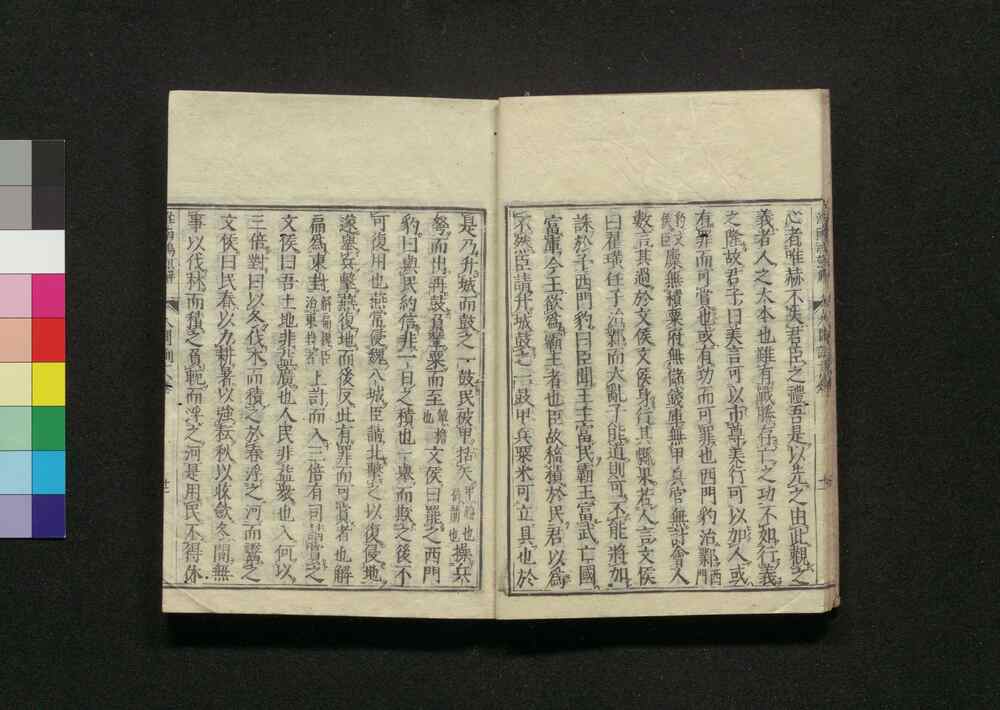 心者唯赫不失君臣之禮吾是以先之由此觀之
義者人之大本也雖有戰勝存亡之功不如行義
之隆故君子曰美言可以市尊美行可以加人或
有罪而可賞也或有功而可罪也西門豹治鄴西門
豹文侯臣廩無積粟府無儲錢庫無甲兵官無計會人
數言其過於文侯文侯身行其縣果若人言文侯
曰翟璜任子治鄴而大亂子能道則可不能將加
誅於子西門豹曰臣聞王主富民霸王富武亡國
富庫今王欲為霸王者也臣故稸積於民君以為
不然臣請升城鼓之一鼓甲兵粟米可立具也於
是乃升城而鼓之一鼓民被甲括矢操兵
弩而出再鼓負輦粟而至文侯曰罷之西門
豹曰與民約信非一日之積也一舉而欺之後不
可復用也燕常侵魏八城臣請北擊之以復侵地
遂舉兵擊燕復地而後反此有罪而可賞者也解
扁為東封解扁魏臣治東封者上計而入三倍有司請賞之
文侯曰吾土地非益廣也人民非益眾也入何以
三倍對曰以冬伐木而積之於春浮之河而鬻之
文侯曰民春以力耕暑以強耘秋以收斂冬間無
事以伐林而積之負軛而浮之河是用民不得休
人間訓